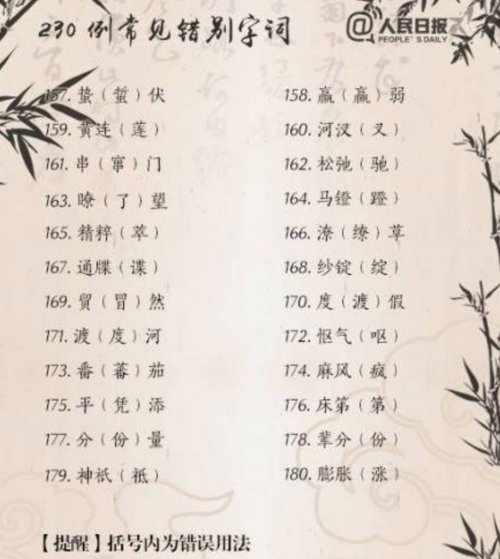 230 例常见错别字词
@人民日报
PEOPLE'S DAILY
157. 蛰（蜇）伏 158. 羸（赢）弱
159. 黄连（莲） 160. 河汊（叉）
161. 串（窜）门 162. 松弛（驰）
163. 瞭（了）望 164. 马镫（蹬）
165. 精粹（萃） 166. 潦（缭）草
167. 通牒（谍） 168. 纱锭（绽）
169. 贸（冒）然 170. 度（渡）假
171. 渡（度）河 172. 怄气（呕）
173. 番（蕃）茄 174. 麻风（疯）
175. 平（凭）添 176. 床笫（第）
177. 分（份）量 178. 辈分（份）
179. 神祇（祗） 180. 膨胀（涨）
【提醒】括号内为错误用法